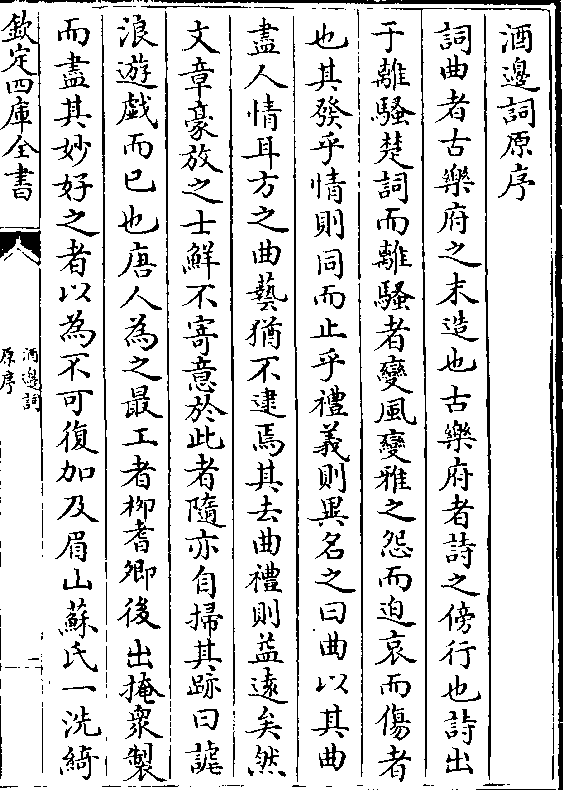 酒邊詞原序
詞曲者古樂府之末造也古樂府者詩之傍行也詩出
于離騷楚詞而離騷者變風變雅之怨而迫哀而傷者
也其發乎情則同而止乎禮義則異名之曰曲以其曲
盡人情耳方之曲藝猶不逮焉其去曲禮則益遠矣然
文章豪放之士鮮不寄意於此者隨亦自掃其跡曰謔
浪遊戲而已也唐人為之最工者柳耆卿後出掩衆製
而盡其妙好之者以為不可復加及眉山蘇氏一洗綺
欽定四庫全書
酒邊詞
原序
一